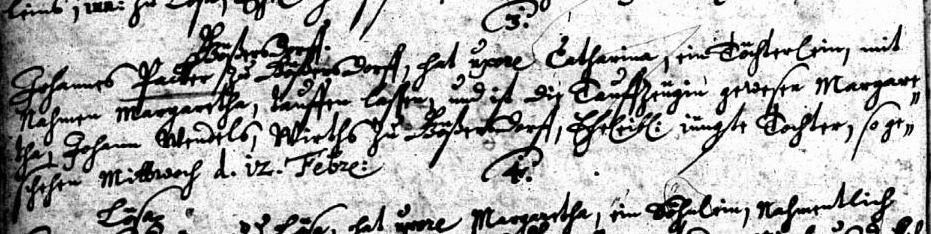 3.
Bößersdorff.
Johannes Packer zu Bößersdorff, hat uxore Catharina, ein Töchterlein, mit
Nahmen Margaretha, tauffen lassen, und ist die Tauffzeügin gewesen Margare„
tha, Johann Wendels, Wirths zu Bößersdorff, Eheleibl: jüngste Tochter, so ge„
schehen Mittwoch d. 12. Febr:
4.
Lösa,
zu Lösa, hat uxore Margaretha, ein Söhnlein, Nahmentlich